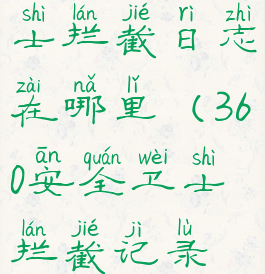 shì lán jié rì zhì
士拦截日志
zài nǎ lǐ
在哪里（36
ān quán wèi shì
0安全卫士
lán jié jì lù
拦截记录